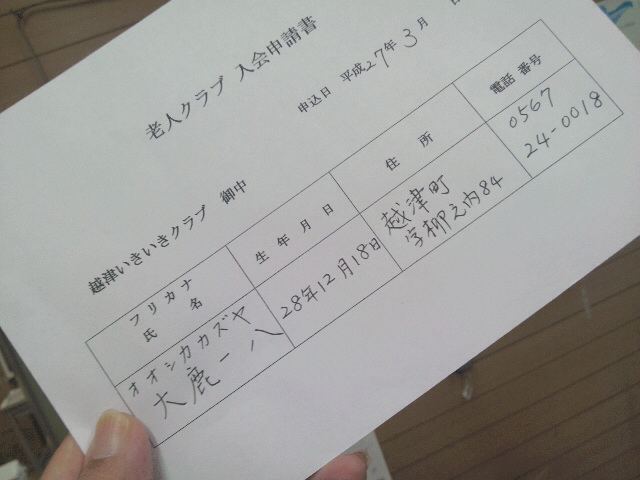 老人クラブ 入会申請書
申込日 平成27年3月
越津いきいきクラブ 御中
フリカナ
氏名
生年月日
住所
電話番号
オオシカカズヤ
大鹿一八
28年12月18日
越津町
字柳之内84
0567
24-0018